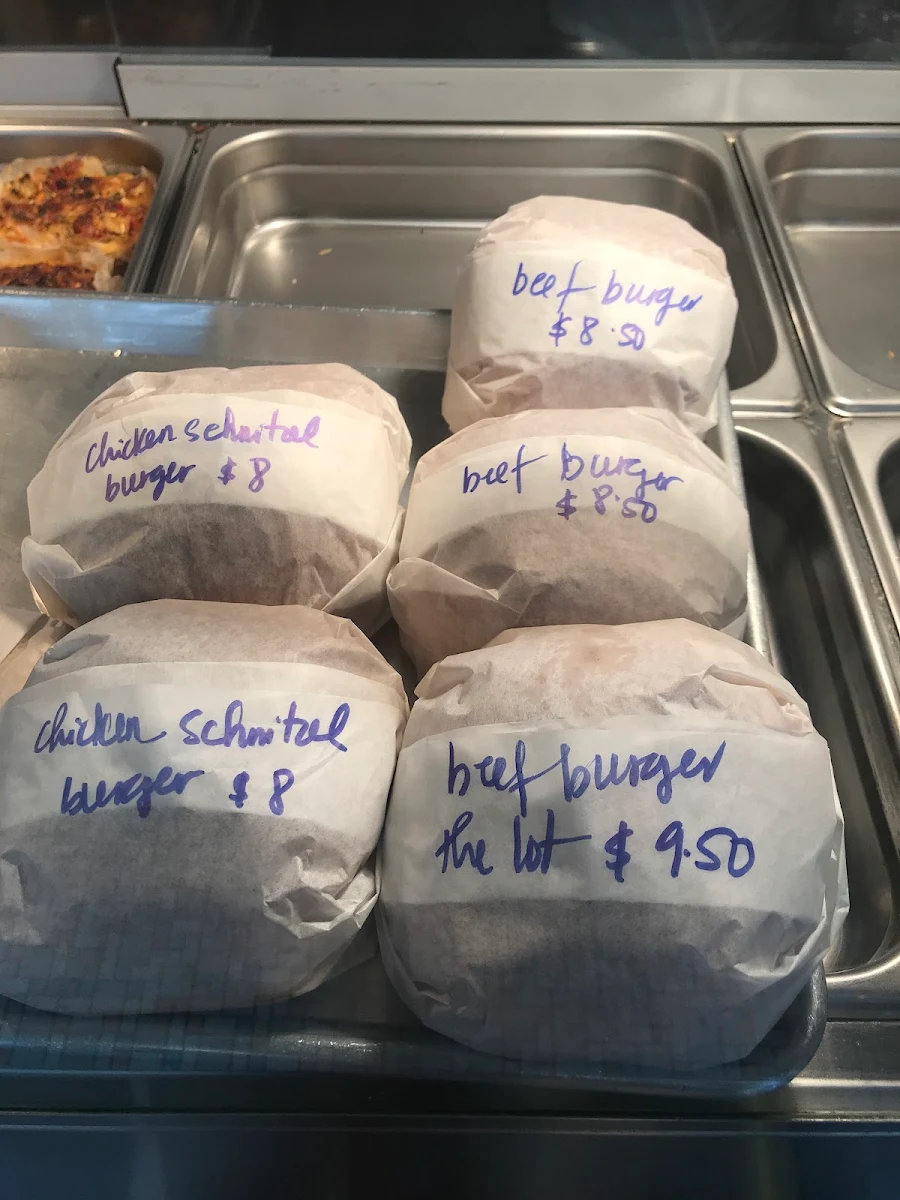 beef burger
$8.50
chicken schnitzel
burger $8
beef burger
$8.50
chicken schnitzel
burger $8
beef burger
the lot $9.50